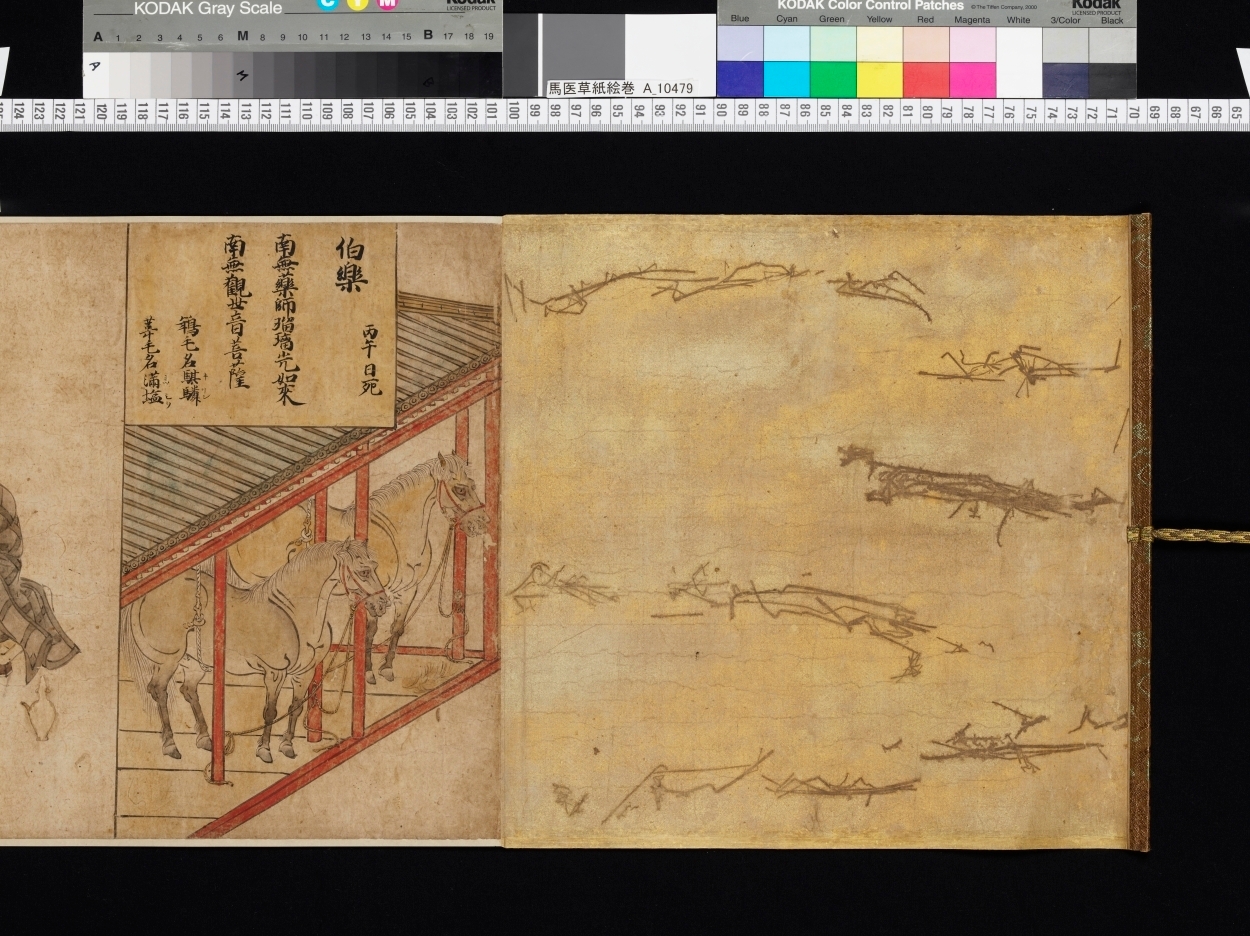 KODAK Gray Scale
C Y M
Kodak
LICENSED PRODUCT
A 1 2 3 4 5 6 M 8 9 10 11 12 13 14 15 B 17 18 19
A M B
KODAK Color Control Patches
© The Tiffen Company, 2000
Kodak
LICENSED PRODUCT
Blue Cyan Green Yellow Red Magenta White 3/Color Black
馬医草紙絵巻 A_10479
124 123 122 121 120 119 118 117 116 115 114 113 112 111 110 109 108 107 106 105 104 103 102 101 100 99 98 97 96 95 94 93 92 91 90 89 88 87 86 85 84 83 82 81 80 79 78 77 76 75 74 73 72 71 70 69 68 67 66 65
伯樂
丙午日死
南無藥師瑠璃光如来
南無觀世音菩薩
鵇毛名騏驎
葦毛名満塩